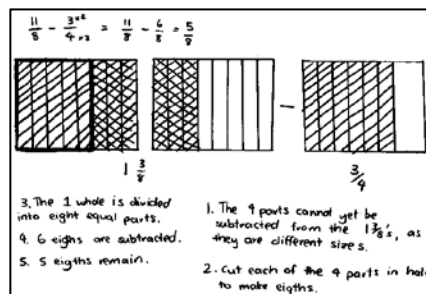 11/8 - 3×2/4×2 = 11/8 - 6/8 = 5/8
1 3/8
3/4
3. The 1 whole is divided
into eight equal parts.
4. 6 eigths are subtracted.
5. 5 eigths remain.
1. The 4 parts cannot yet be
subtracted from the 1 3/8's, as
they are different sizes.
2. Cut each of the 4 parts in half
to make eigths.